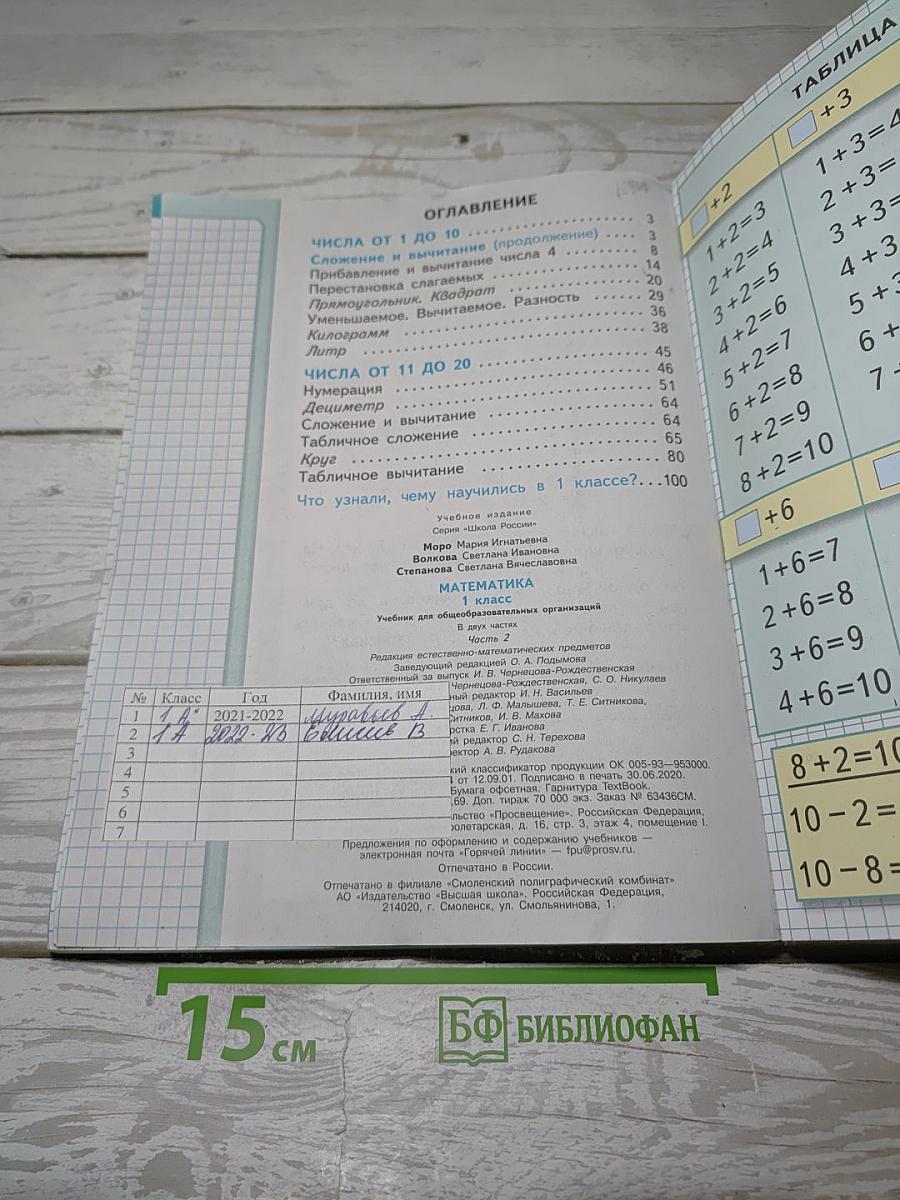 ОГЛАВЛЕНИЕ
ЧИСЛА ОТ 1 ДО 10 ............ 3
Сложение и вычитание (продолжение) .... 3
Прибавление и вычитание числа 4 ........ 8
Перестановка слагаемых ............ 14
Прямоугольник. Квадрат ............ 20
Уменьшаемое. Вычитаемое. Разность ...... 29
Килограмм ............ 36
Литр ............ 38
ЧИСЛА ОТ 11 ДО 20 ............ 45
Нумерация ............ 46
Дециметр ............ 51
Сложение и вычитание ............ 64
Табличное сложение ............ 64
Круг ............ 65
Табличное вычитание ............ 80
Что узнали, чему научились в 1 классе?...100
Учебное издание
Серия «Школа России»
Моро Мария Игнатьевна
Волкова Светлана Ивановна
Степанова Светлана Вячеславовна
МАТЕМАТИКА
1 класс
Учебник для общеобразовательных организаций
В двух частях
Часть 2
Редакция естественно-математических предметов
Заведующий редакцией О. А. Подымова
Ответственный за выпуск И. В. Чернецова-Рождественская
Чернецова-Рождественская, С. О. Николаев
редактор И. Н. Васильев
Л. Ф. Малышева, Т. Е. Ситникова,
Ситников, И. В. Махова
Е. Г. Иванова
редактор С. Н. Терехова
А. В. Рудакова
классификатор продукции ОК 005-93—953000.
от 12.09.01. Подписано в печать 30.06.2020.
Бумага офсетная. Гарнитура TextBook.
,69. Доп. тираж 70 000 экз. Заказ № 63436СМ.
«Просвещение». Российская Федерация,
д. 16, стр. 3, этаж 4, помещение I.
Предложения по оформлению и содержанию учебников —
электронная почта «Горячей линии» — fpu@prosv.ru.
Отпечатано в России.
Отпечатано в филиале «Смоленский полиграфический комбинат»
АО «Издательство «Высшая школа». Российская Федерация,
214020, г. Смоленск, ул. Смольянинова, 1.
№ Класс Год Фамилия, имя
1 1 „А" 2021-2022 Муравьев А.
2 1 А 2022-23 В
3
4
5
6
7
ТАБЛИЦА
+2
1+2=3
2+2=4
3+2=5
4+2=6
5+2=7
6+2=8
7+2=9
8+2=10
+3
1+3=4
2+3=
3+3=
4+3
5+3
6+
7+
+6
1+6=7
2+6=8
3+6=9
4+6=10
8+2=10
10−2=
10−8=
15 см
БФ БИБЛИОФАН